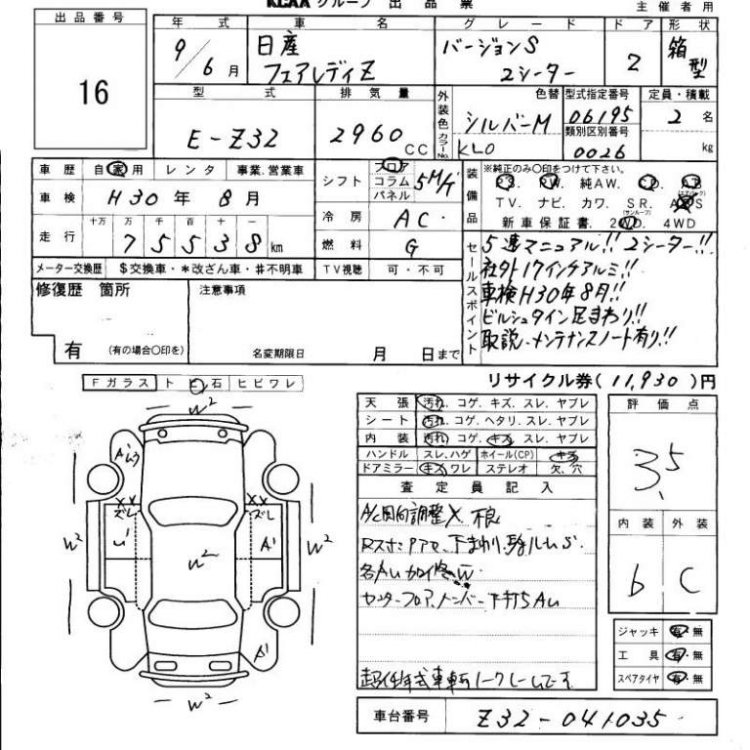 KCAA グループ 出品票
主催者用
出品番号
16
年式 車名 グレード ドア 形状
9/6月 日産 フェアレディZ バージョンS 2シーター 2 箱型
型式 排気量 外装色 色替 カラーNo. 型式指定番号 定員・積載
E-Z32 2960 CC シルバーM KL0 06195 2名
類別区別番号
0026 kg
車歴 自家用 レンタ 事業.営業車
車検 H30年 8月
走行 十万 万 千 百 十 一
75538 km
メーター交換歴 $交換車・*改ざん車・#不明車
シフト フロア コラム パネル 5M/T
冷房 AC
燃料 G
TV視聴 可・不可
装備品 ※純正のみ〇印をつけて下さい。
PS. PW. 純AW. CD.
TV. ナビ. カワ. SR.
(サンルーフ)
新車保証書. 2WD. 4WD
セールスポイント
5速マニュアル!! 2シーター!!
社外17インチアルミ!!
車検H30年8月!!
ビルシュタイン足まわり!!
取説、メンテナンスノート有り!!
修復歴 箇所
有 (有の場合〇印を)
注意事項
名変期限日 月 日まで
リサイクル券(11,930)円
Fガラス トビ石 ヒビワレ
W2
A'
ズレ
ズレ
U'
A'
W2
W2
W2
A'
W2
天張 汚れ. コゲ. キズ. スレ. ヤブレ
シート 汚れ. コゲ. ヘタリ. スレ. ヤブレ
内装 汚れ. コゲ. キズ. スレ. ヤブレ
ハンドル スレ. ハゲ ホイール(CP) キズ
ドアミラー キズ ワレ ステレオ 欠. 穴
査定員記入
不良
下まわり
センターフロア、メンバー下打5AU
評価点
3.5
内装 外装
b C
ジャッキ 有・無
工具 有・無
スペアタイヤ 有・無
車台番号 Z32-041035